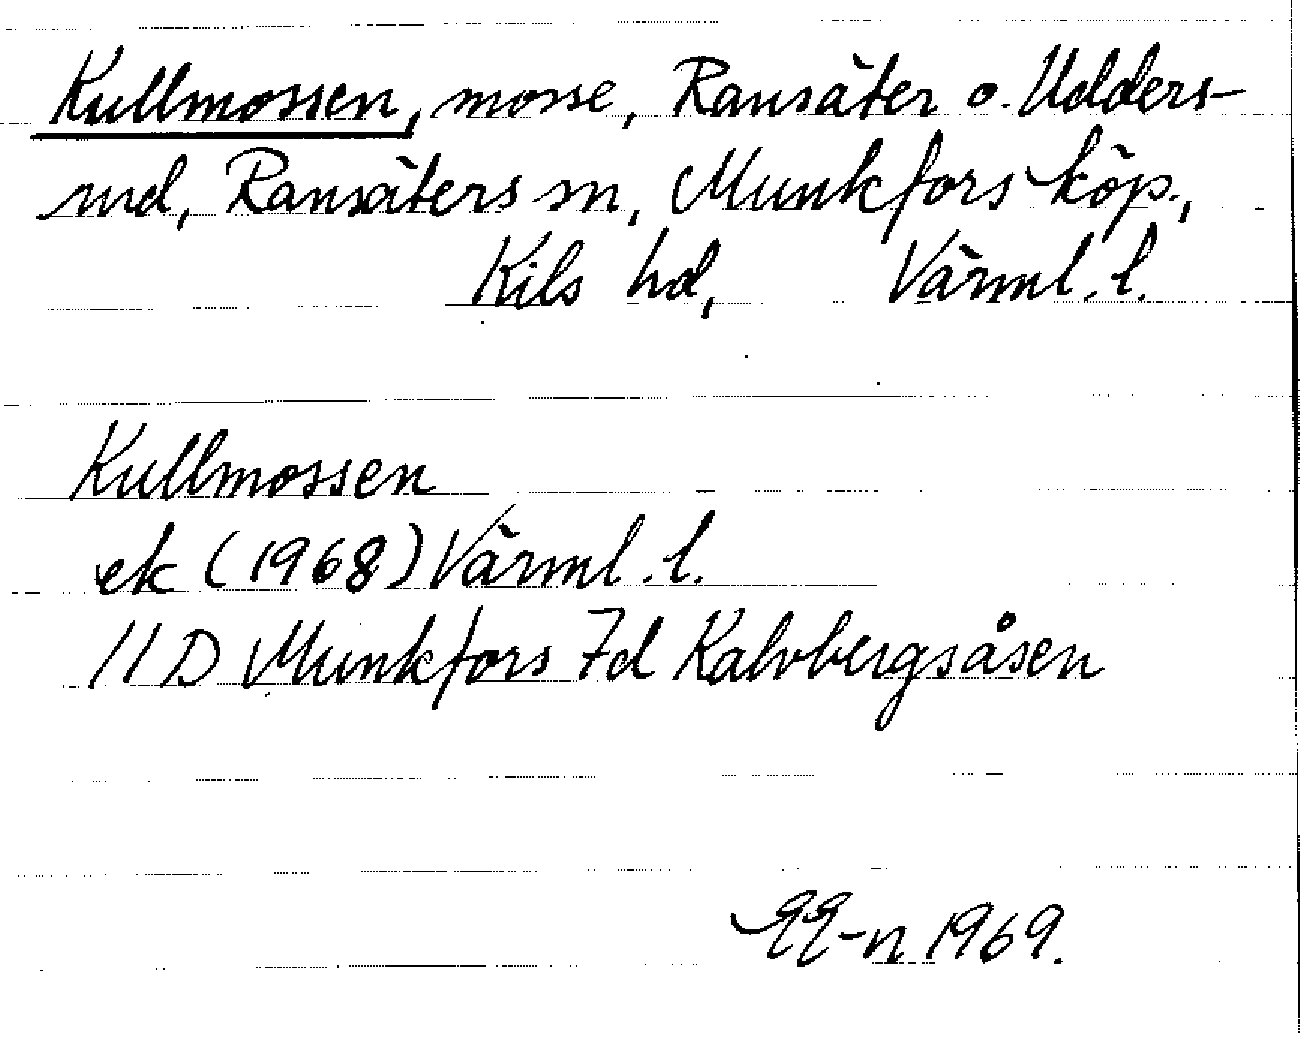 Kullmossen, mosse, Ransäter o. Udders-
rud, Ransäters sn, Munkfors köp.,
Kils hd, Värml. l.
Kullmossen
ek (1968) Värml. l.
11 D Munkfors 7d Kalvbergsåsen
1969.